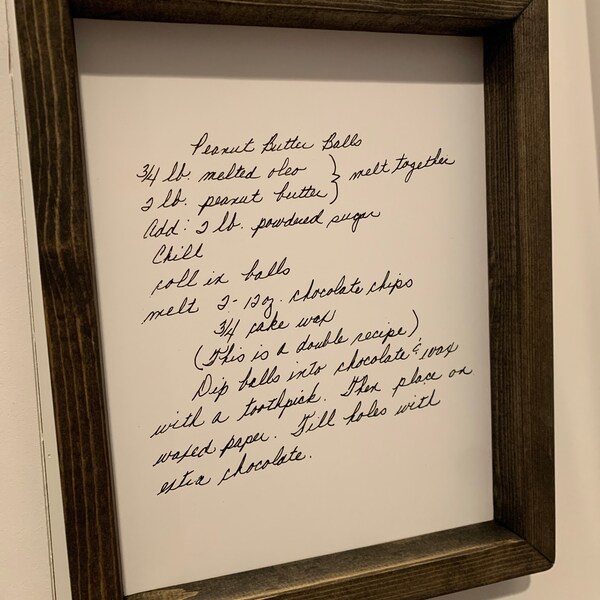 Peanut Butter Balls
3/4 lb. melted oleo } melt together
2 lb. peanut butter
Add: 2 lb. powdered sugar
Chill
roll in balls
melt 2-12 oz. chocolate chips
3/4 cake wax
(This is a double recipe)
Dip balls into chocolate & wax
with a toothpick. Then place on
waxed paper. Fill holes with
extra chocolate.